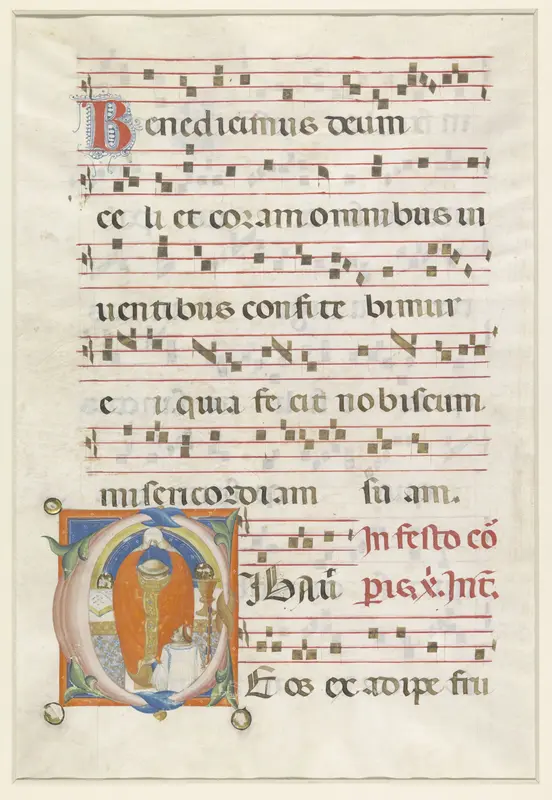 Benedicimus deum
ce li et coram omnibus ui
uentibus confite bimur
e i, quia fe cit nobiscum
misericordiam su am.
In festo cō
IBAū
pis x̄. Int.
E os ex adipe fru